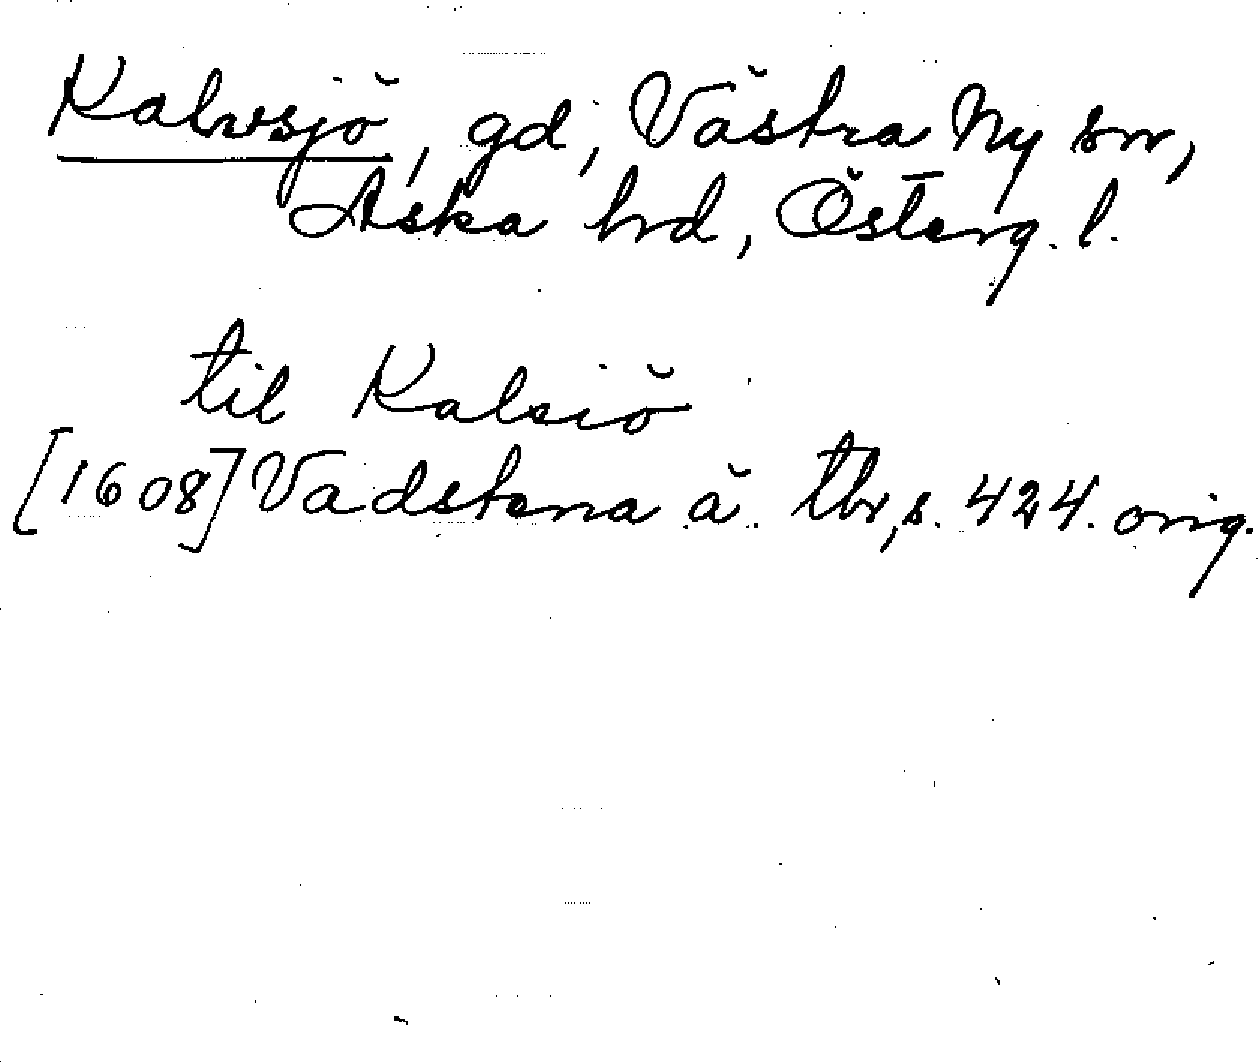 Kalvsjö, gd, Västra Ny sn,
Aska hd, Österg. l.
til Kalsiö
[1608] Vadstena ä. tb, s. 424. orig.